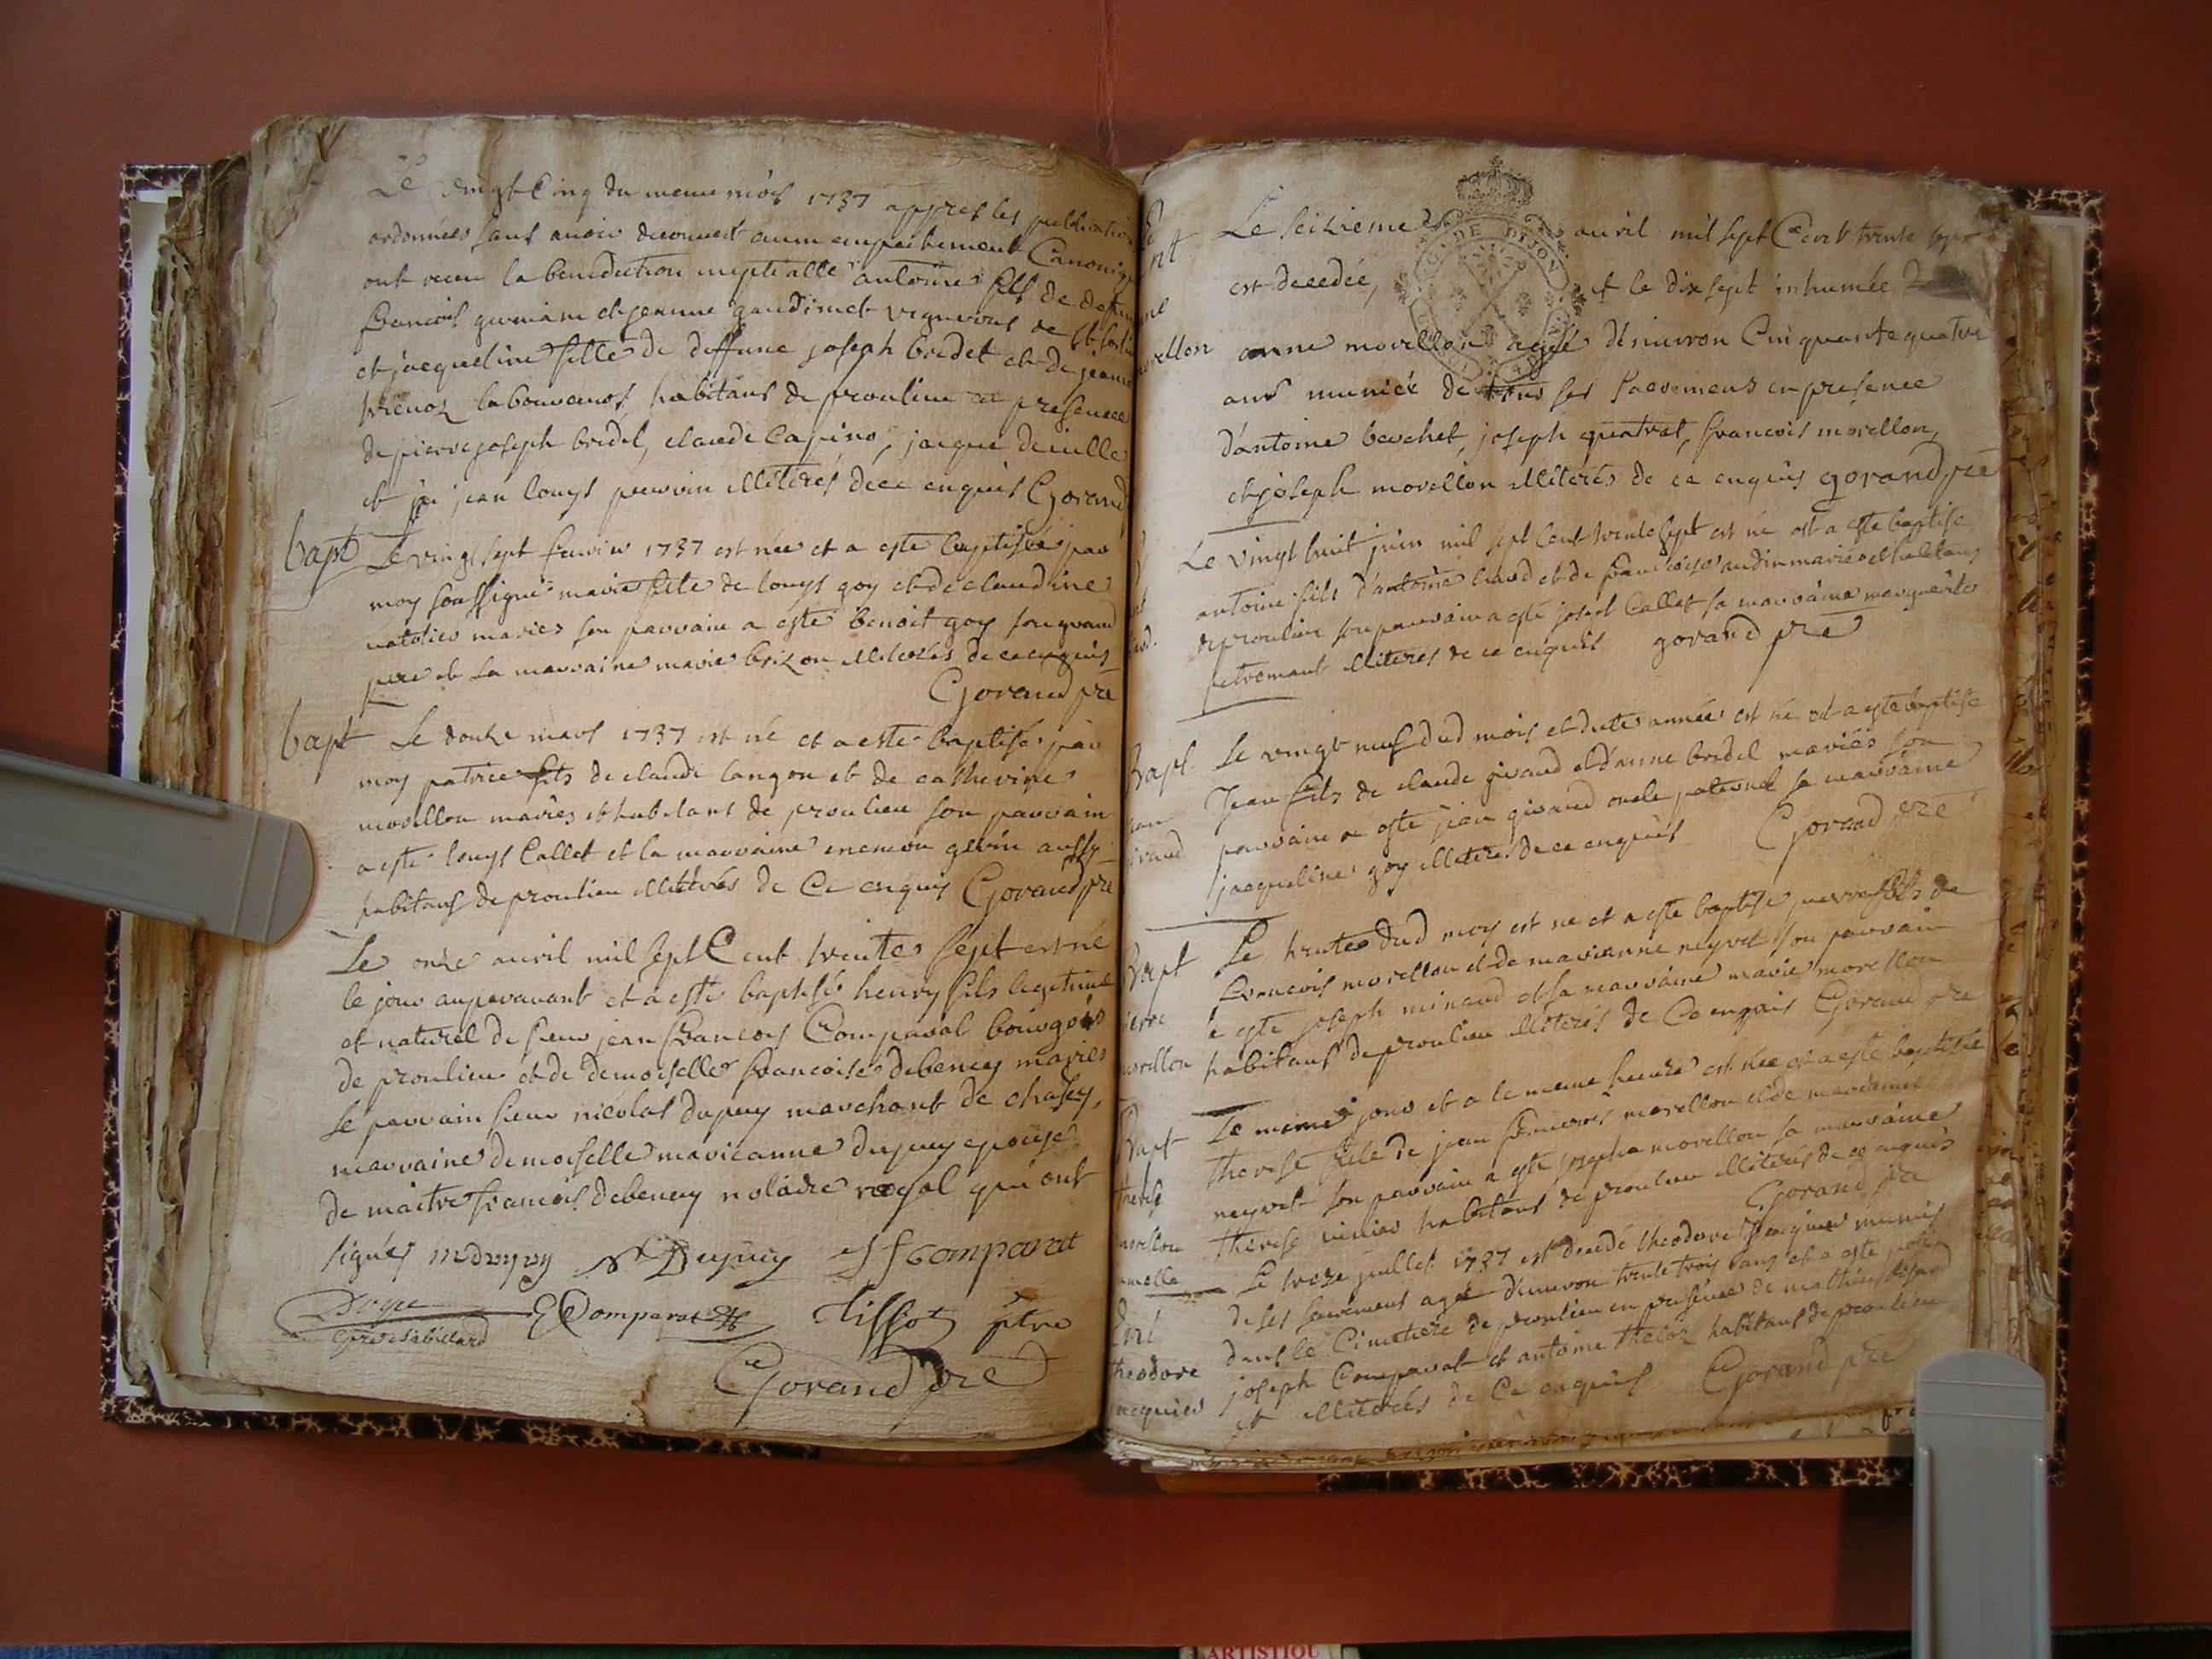 Le vingt Cinq du meme mois 1737 appres les publications
ordonnées sans avoir decouvert aucun empechement Canonique
ont receu la benediction nuptialle antoine fils de deffunt
francois germain et jeanne gaudimet vignerons de
et jacqueline fille de deffunc joseph bridet et de jeanne
trenoz laboureurs habitans de proulieu en presence
de pierre joseph bridel, claude Capino, jacque
et jean louys illiteres de ce enquis Gorand
bapt Le vingt sept fevrier 1737 est née et a esté baptisée par
moy soussigné marie fille de louys goy et de claudine
mariés son parrain a este benoit goy son grand
pere et sa marraine marie brizon illiterés de ce enquis
Gorand pre
bapt Le douze mars 1737 est né et a esté baptisé par
moy patrice fils de claude langon et de catherine
morellon mariés et habitans de proulieu son parrain
a esté louys Callet et la marraine aussy
habitans de proulieu illiterés de Ce enquis Gorand pre
Le onze avril mil sept Cent trente sept est né
le jour auparavant et a esté baptisé henry fils legitime
et naturel de sieur jean francois Comparat bourgois
de proulieu et de demoiselle francoise debeney mariés
le parrain sieur nicolas dupuy marchant de chasey,
marraine demoiselle marieanne dupuy epouse
de maitre francois debeney notaire royal qui ont
signés mdupuy N Dupuy J f Comparat
E Comparat Tissot ptre
Gorand pre
Le seizieme avril mil sept Cent trente sept
est decedée, et le dix sept inhumée
anne morellon agée d'enuiron Cinquante quatre
ans muniée de tous ses sacremens en presence
d'antoine bouchet, joseph quatrat, francois morellon,
et joseph morellon illiterés de ce enquis gorand pre
Le vingt huit juin mil sept Cent trente sept est né et a este baptisé
antoine fils d'antoine et de francoise audin mariés et habitans
de proulieu son parrain a esté josept Callet sa marraine marguerite
petremant illiteres de ce enquis gorand pre
Bapt Le vingt neuf dud mois et dite année est né et a este baptisé
Jean fils de claude givaud et d'anne bridel mariés son
parrain a esté jean givaud oncle paternel sa marraine
jacqueline goy illiteres de ce enquis Gorand pre
Bapt Le trente dud moy est né et a este baptisé pierre fils de
francois morellon et de marianne neyret son parrain
a este joseph minaud et sa marraine marie morellon
habitans de proulieu illiterés de Ce enquis Gorand pre
Bapt Le meme jour et a la meme heure est née et a este baptisée
therese fille de jean francois morellon et de marianne
neyret son parrain a esté joseph morellon sa marraine
therese habitans de proulieu illiterés de ce enquis
Gorand pre
Ent Le treze juillet 1737 est decedé theodore jacquier munis
de ses sacremens agé d'enuiron trente trois ans et a este
dans le Cimetiere de proulieu en presence de mathieu
joseph Comparat et antoine habitans de proulieu
et illiterés de Ce enquis Gorand pre
ARTISTIQU